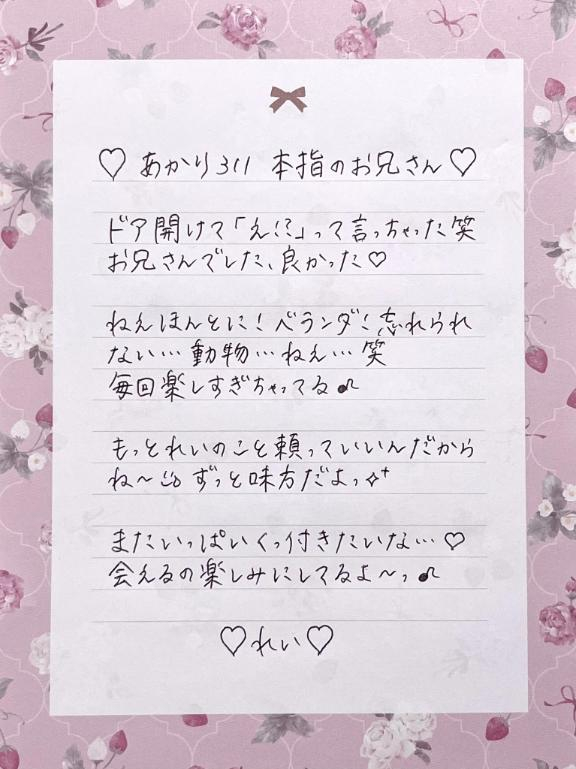 ♡ あかり311 本指のお兄さん ♡
ドア開けて「え!?」って言っちゃった笑
お兄さんでした、良かった♡
ねえほんとに！ベランダ！忘れられ
ない…動物…ねえ…笑
毎回楽しすぎちゃってる♪
もっとれいのこと頼っていいんだから
ね〜 ずっと味方だよっ✧⁺
またいっぱいくっ付きたいな…♡
会えるの楽しみにしてるよ〜っ♪
♡れい♡